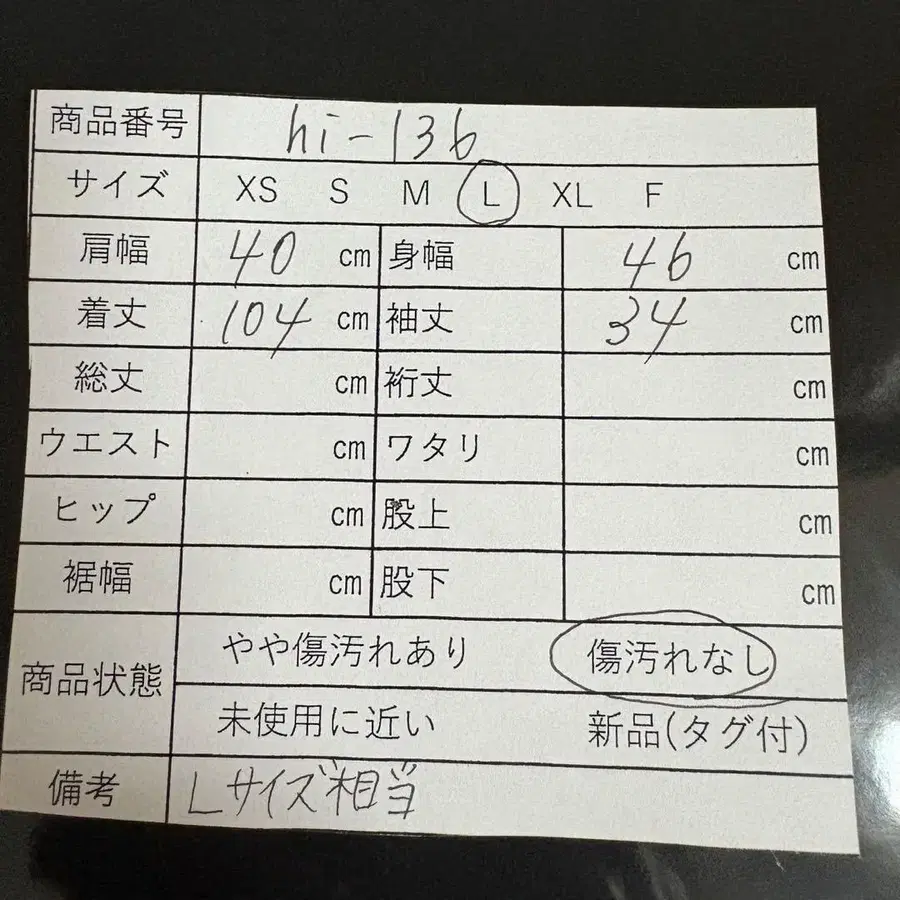 商品番号 hi-136
サイズ XS S M L XL F
肩幅 40 cm 身幅 46 cm
着丈 104 cm 袖丈 34 cm
総丈 cm 裄丈 cm
ウエスト cm ワタリ cm
ヒップ cm 股上 cm
裾幅 cm 股下 cm
商品状態 やや傷汚れあり 傷汚れなし
未使用に近い 新品(タグ付)
備考 Lサイズ相当